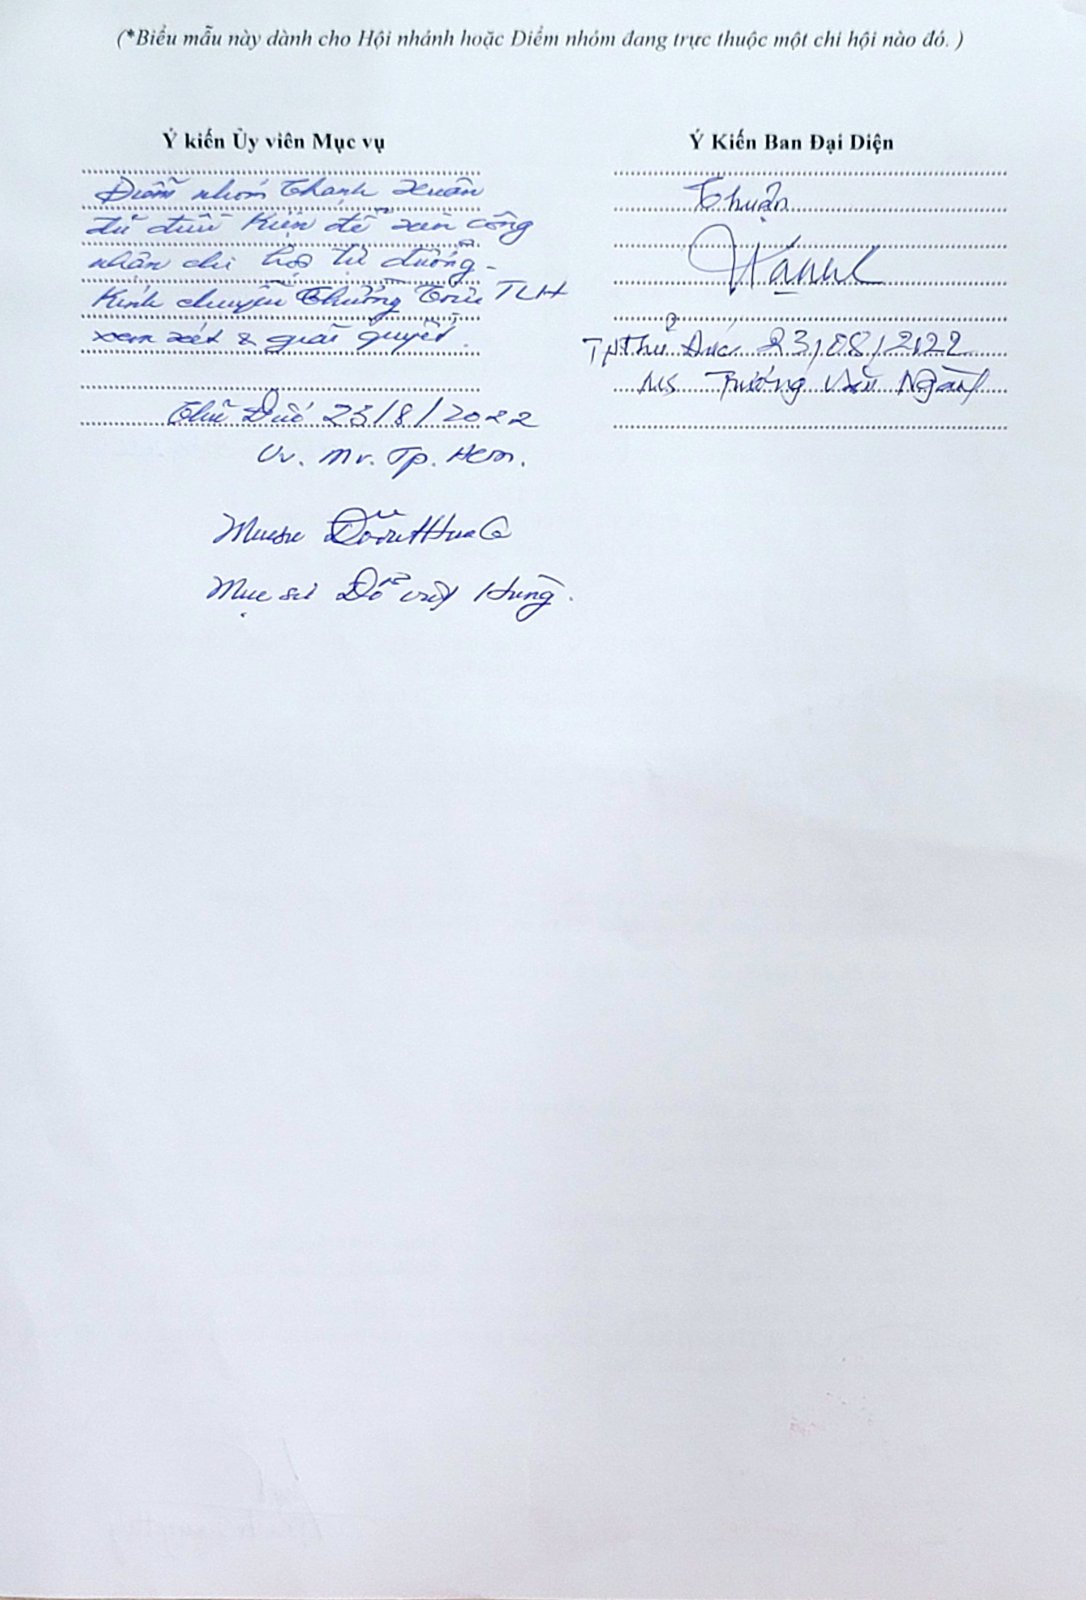 (*Biểu mẫu này dành cho Hội nhánh hoặc Điểm nhóm đang trực thuộc một chi hội nào đó. )
Ý kiến Ủy viên Mục vụ
Điểm nhóm Thạnh Xuân
đủ điều kiện để xin công
nhận chi hội tự dưỡng.
Kính chuyển Thường Trực TLH
xem xét & giải quyết.
Thủ Đức 23/8/2022
Uv. Mv. Tp. Hcm.
Mục sư Đỗ Việt Hùng.
Ý Kiến Ban Đại Diện
Thuận
Tp Thủ Đức 23/08/2022
MS Trương Văn Ngành